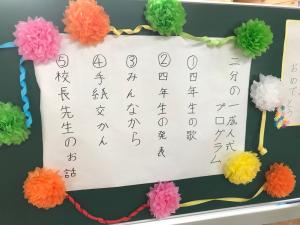 二分の一成人式
プログラム
①四年生の歌
②四年生の発表
③みんなから
④手紙交かん
⑤校長先生のお話
おめで